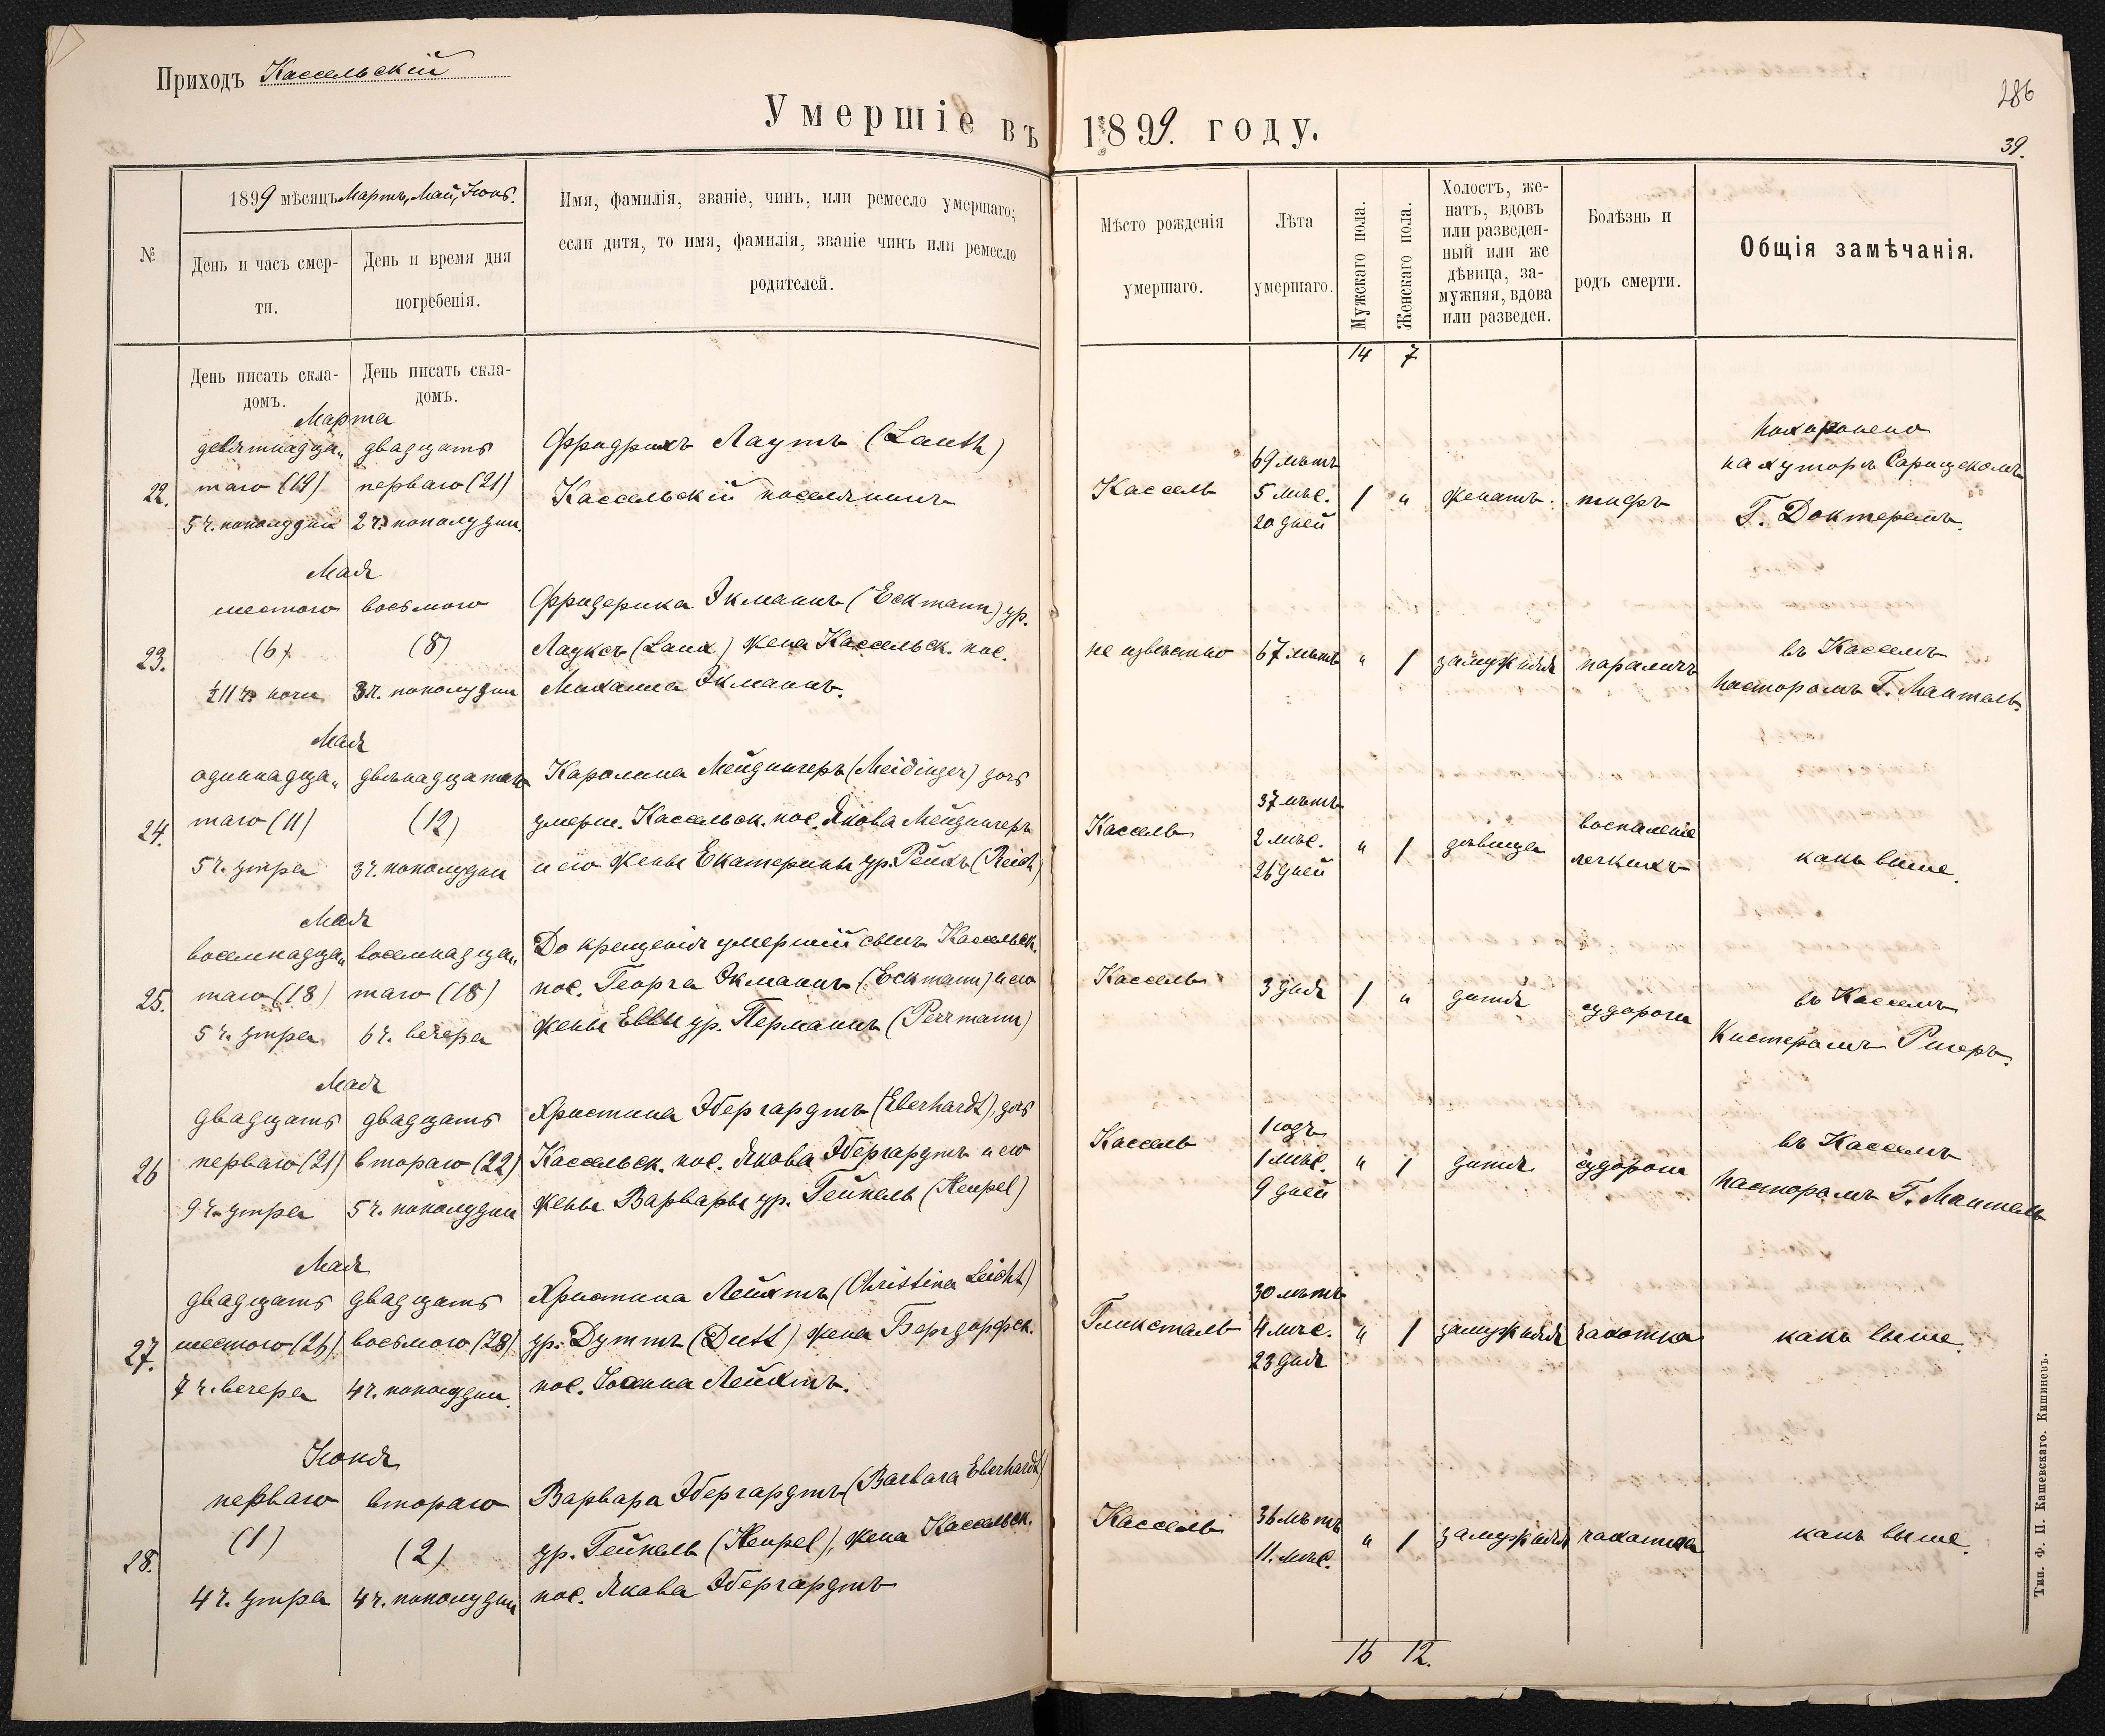 Приходъ Кассельскій
Умершіе въ 1899. году.
286
39.
№
1899 мѣсяцъ Мартъ, Май, Іюнь.
День и часъ смер-
ти.
День и время дня
погребенія.
Имя, фамилія, званіе, чинъ, или ремесло умершаго;
если дитя, то имя, фамилія, званіе чинъ или ремесло
родителей.
Мѣсто рожденія
умершаго.
Лѣта
умершаго.
Мужскаго пола.
Женскаго пола.
Холостъ, же-
натъ, вдовъ
или разведен-
ный или же
дѣвица, за-
мужняя, вдова
или разведен.
Болѣзнь и
родъ смерти.
Общія замѣчанія.
День писать скла-
домъ.
День писать скла-
домъ.
14 7
22.
Марта
девятнадца„
таго (19)
5 ч. пополудни
двадцать
перваго (21)
2 ч. пополудни.
Фридрихъ Лаутъ (Lauth)
Кассельскій поселянинъ
Кассель
69 лѣтъ
5 мѣс.
20 дней
1 "
женатъ.
тифъ
Похоронено
на хуторѣ
Г. Доктеремъ.
23.
Мая
шестого
(6).
½11 ч. ночи
восьмого
(8)
3 ч. пополудни
Фридерика Экманнъ (Eckmann) ур.
Лауксъ (Laux) жена Кассельск. пос.
Михаила Экманнъ.
не извѣстно
67 лѣтъ
" 1
замужняя
параличъ
въ Кассель
Пасторомъ Г. Мантель.
24.
Мая
одиннадца„
таго (11)
5 ч. утра
двѣнадцатаго
(12)
3 ч. пополудни
Каролина Мейдингеръ (Meidinger) дочь
умерш. Кассельск. пос. Якова Мейдингеръ
и его жены Екатерины ур. Рейхъ (Reich)
Кассель
37 лѣтъ
2 мѣс.
26 дней
" 1
дѣвица
воспаленіе
легкихъ
какъ выше.
25.
Мая
восемнадца„
таго (18)
5 ч. утра
восемнадца„
таго (18)
6 ч. вечера
До крещенія умершій сынъ Кассельск.
пос. Георга Экманнъ (Eckmann) и его
жены Еввы ур. Перманнъ (Perrmann)
Кассель
3 дня
1 "
дитя
судороги
въ Кассель
Кистеромъ Ригеръ.
26
Мая
двадцать
перваго (21)
9 ч. утра
двадцать
втораго (22)
5 ч. пополудни
Христина Эбергардтъ (Eberhardt), дочь
Кассельск. пос. Якова Эбергардтъ и его
жены Варвары ур. Гейпель (Heupel)
Кассель
1 годъ
1 мѣс.
9 дней
" 1
дитя
судороги
въ Кассель
Пасторомъ Г. Мантель
27.
Мая
двадцать
шестого (26)
7 ч. вечера
двадцать
восьмого (28)
4 ч. пополудни.
Христина Лейхтъ (Christina Leicht)
ур. Дуттъ (Dutt) жена Бергдорфск.
пос. Іоанна Лейхтъ.
Глюксталь
30 лѣтъ
4 мѣс.
23 дня
" 1
замужняя
чахотка
какъ выше.
28.
Іюня
перваго
(1)
4 ч. утра
втораго
(2)
4 ч. пополудни
Варвара Эбергардтъ (Barbara Eberhardt)
ур. Гейпель (Heupel), жена Кассельск.
пос. Якова Эбергардтъ
Кассель
36 лѣтъ
11. мѣс.
" 1
замужняя
чахотка
какъ выше.
16 12.
Тип. Ф. П. Кашевскаго. Кишиневъ.